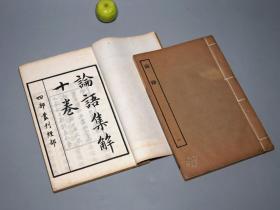 論語集解
十卷
四部叢刊經部
論語